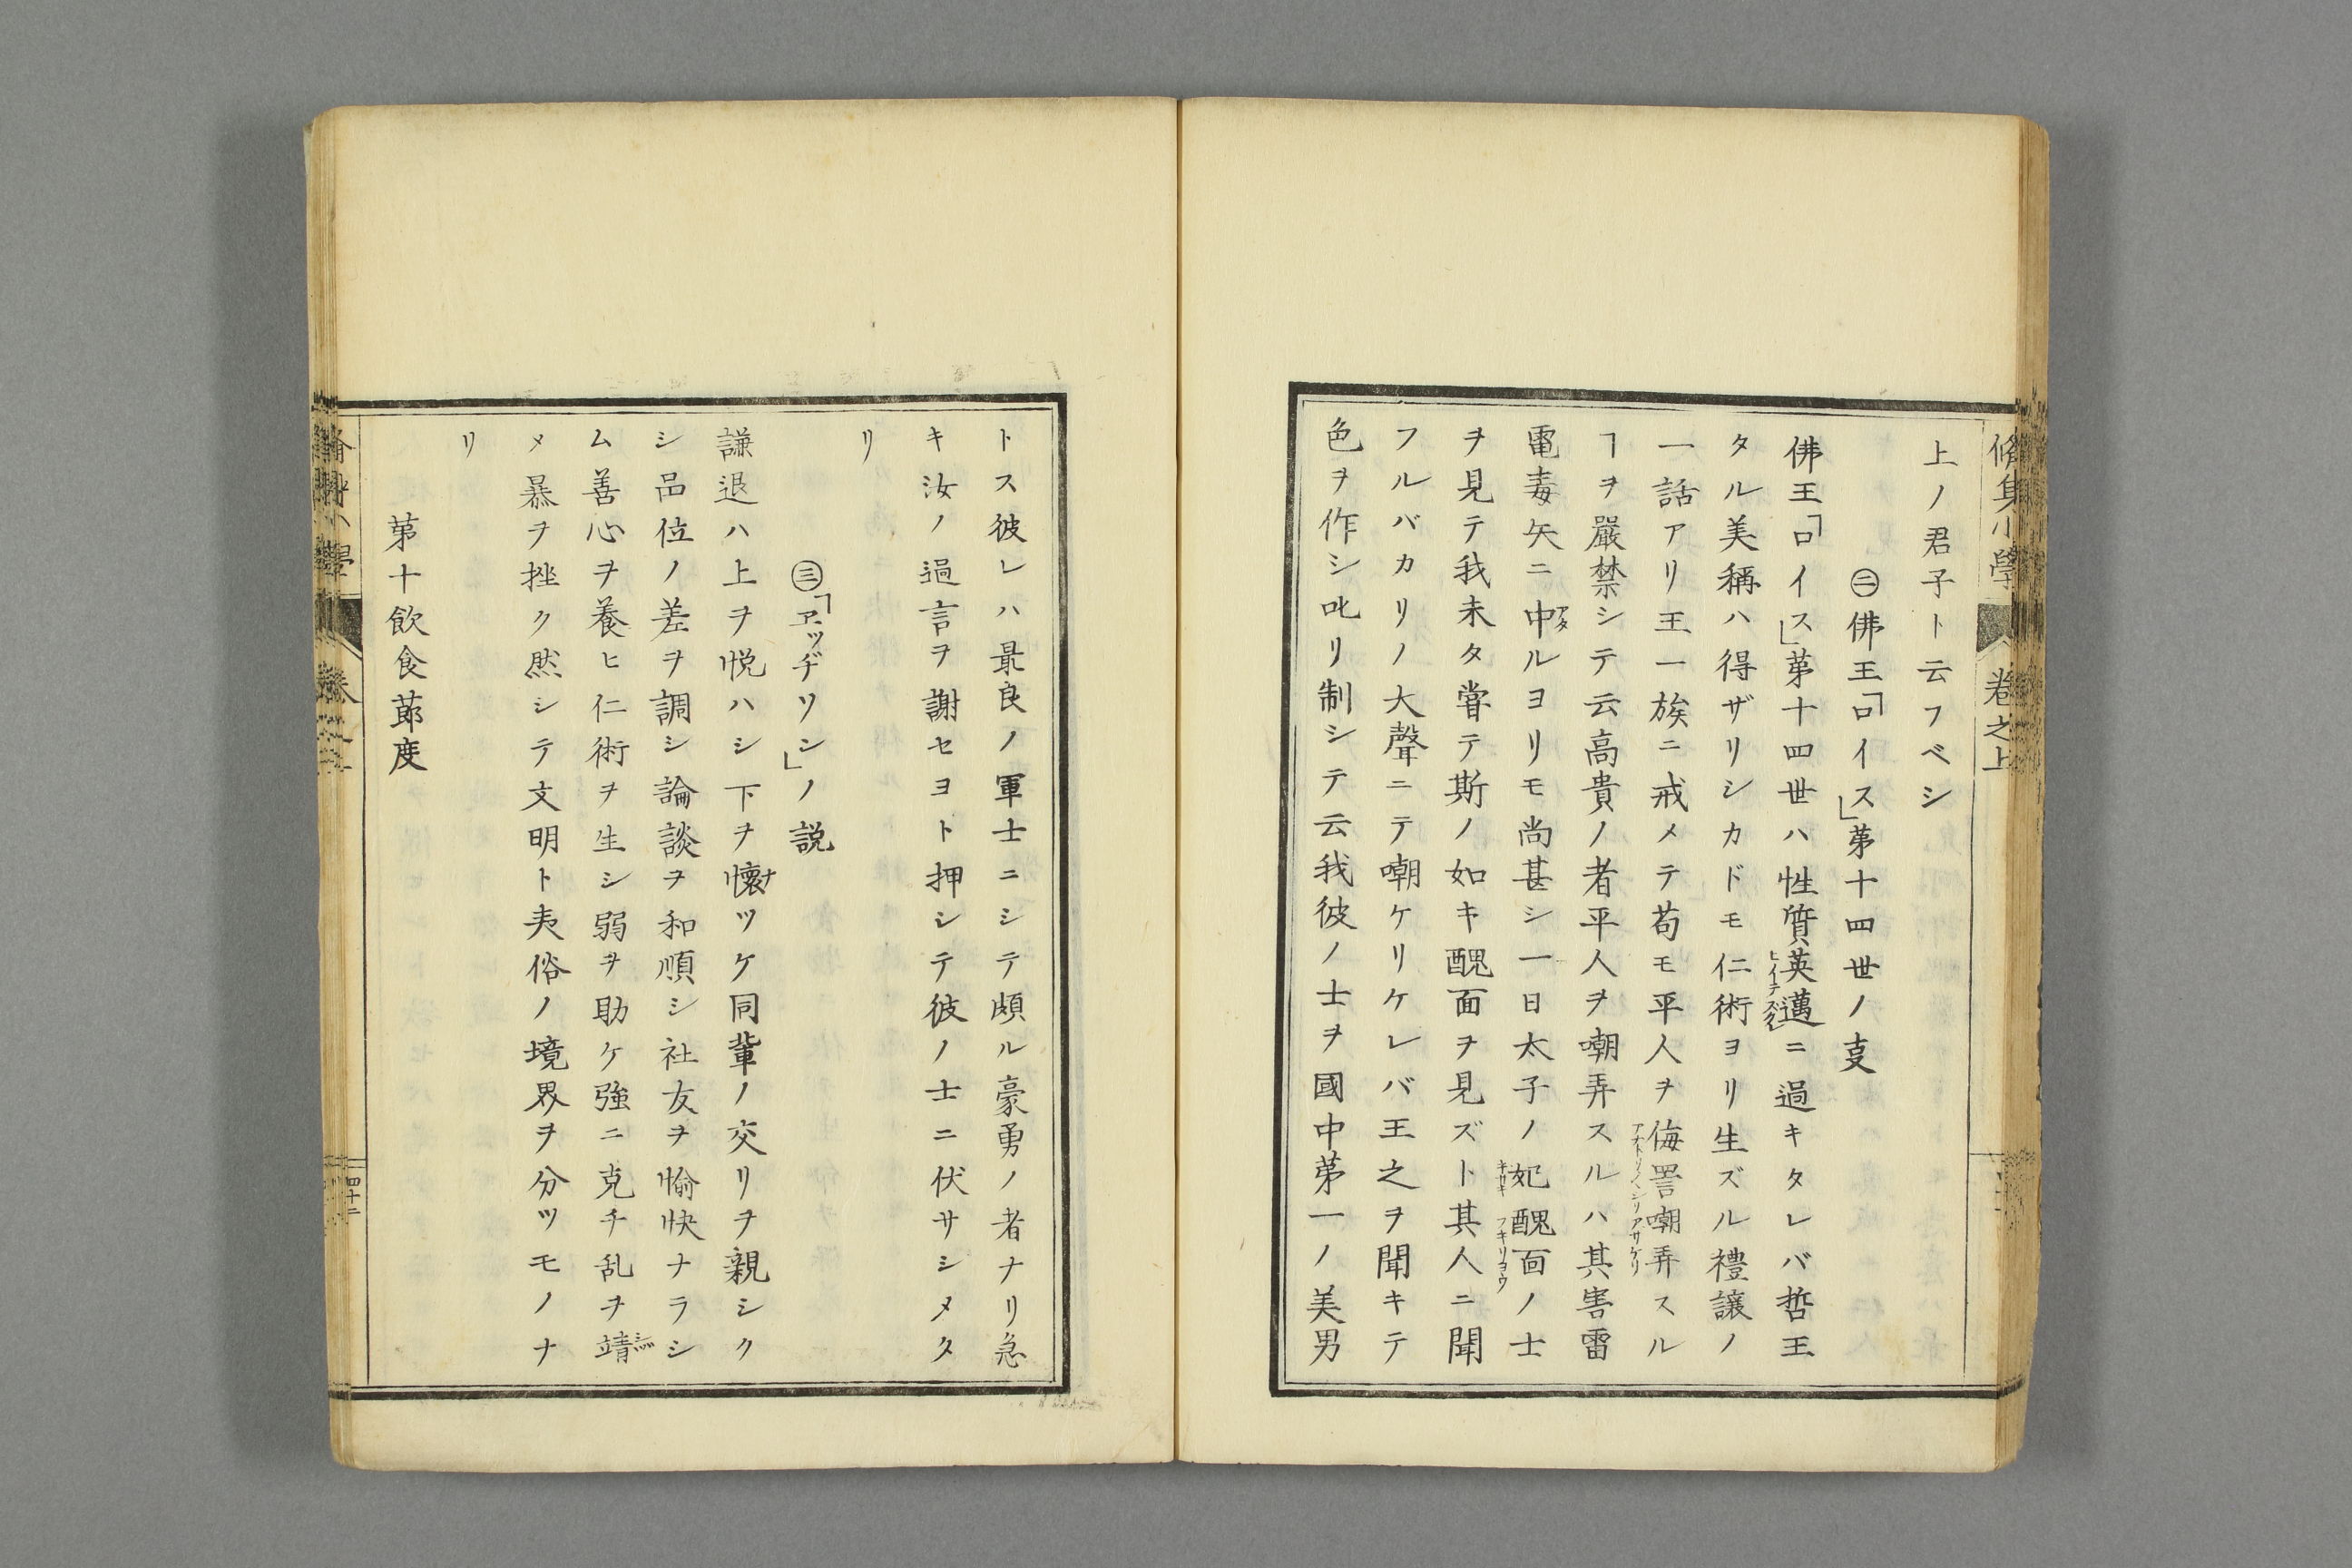 脩身小學 卷之上
上ノ君子ト云フベシ
㊁佛王「ロイス」苐十四世ノ㕝
佛王「ロイス」苐十四世ハ性質英邁ニ過キタレバ哲王
タル美稱ハ得ザリシカドモ仁術ヨリ生ズル禮讓ノ
一話アリ王一族ニ戒メテ苟モ平人ヲ侮詈嘲弄スル
ヿヲ嚴禁シテ云高貴ノ者平人ヲ嘲弄スルハ其害雷
電毒矢ニ中ルヨリモ尚甚シ一日太子ノ妃醜面ノ士
ヲ見テ我未タ甞テ斯ノ如キ醜面ヲ見ズト其人ニ聞
フルバカリノ大聲ニテ嘲ケリケレバ王之ヲ聞キテ
色ヲ作シ叱リ制シテ云我彼ノ士ヲ國中苐一ノ美男
トス彼レハ最良ノ軍士ニシテ頗ル豪勇ノ者ナリ急
キ汝ノ過言ヲ謝セヨト押シテ彼ノ士ニ伏サシメタ
リ
㊂「ヱッヂソン」ノ説
謙退ハ上ヲ悦ハシ下ヲ懷ツケ同輩ノ交リヲ親シク
シ品位ノ差ヲ調シ論談ヲ和順シ社友ヲ愉快ナラシ
ム善心ヲ養ヒ仁術ヲ生シ弱ヲ助ケ強ニ克チ乱ヲ靖
メ暴ヲ挫ク然シテ文明ト夷俗ノ境界ヲ分ツモノナ
リ
苐十飲食節度
四十二